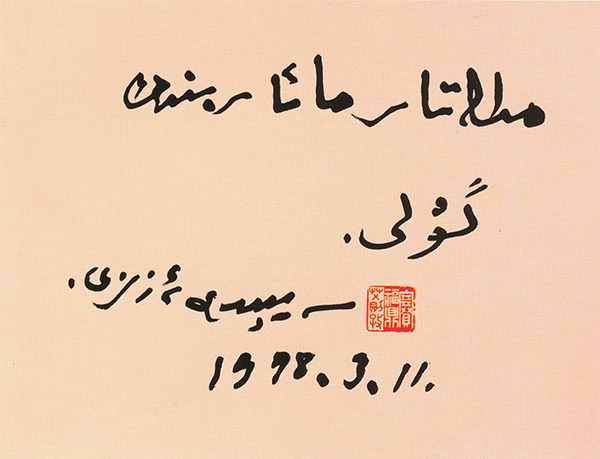 مىللەتلەر مائارىپىنىڭ
گۈلى.
سەيپىدىن ئەزىزى.
1978.3.11.